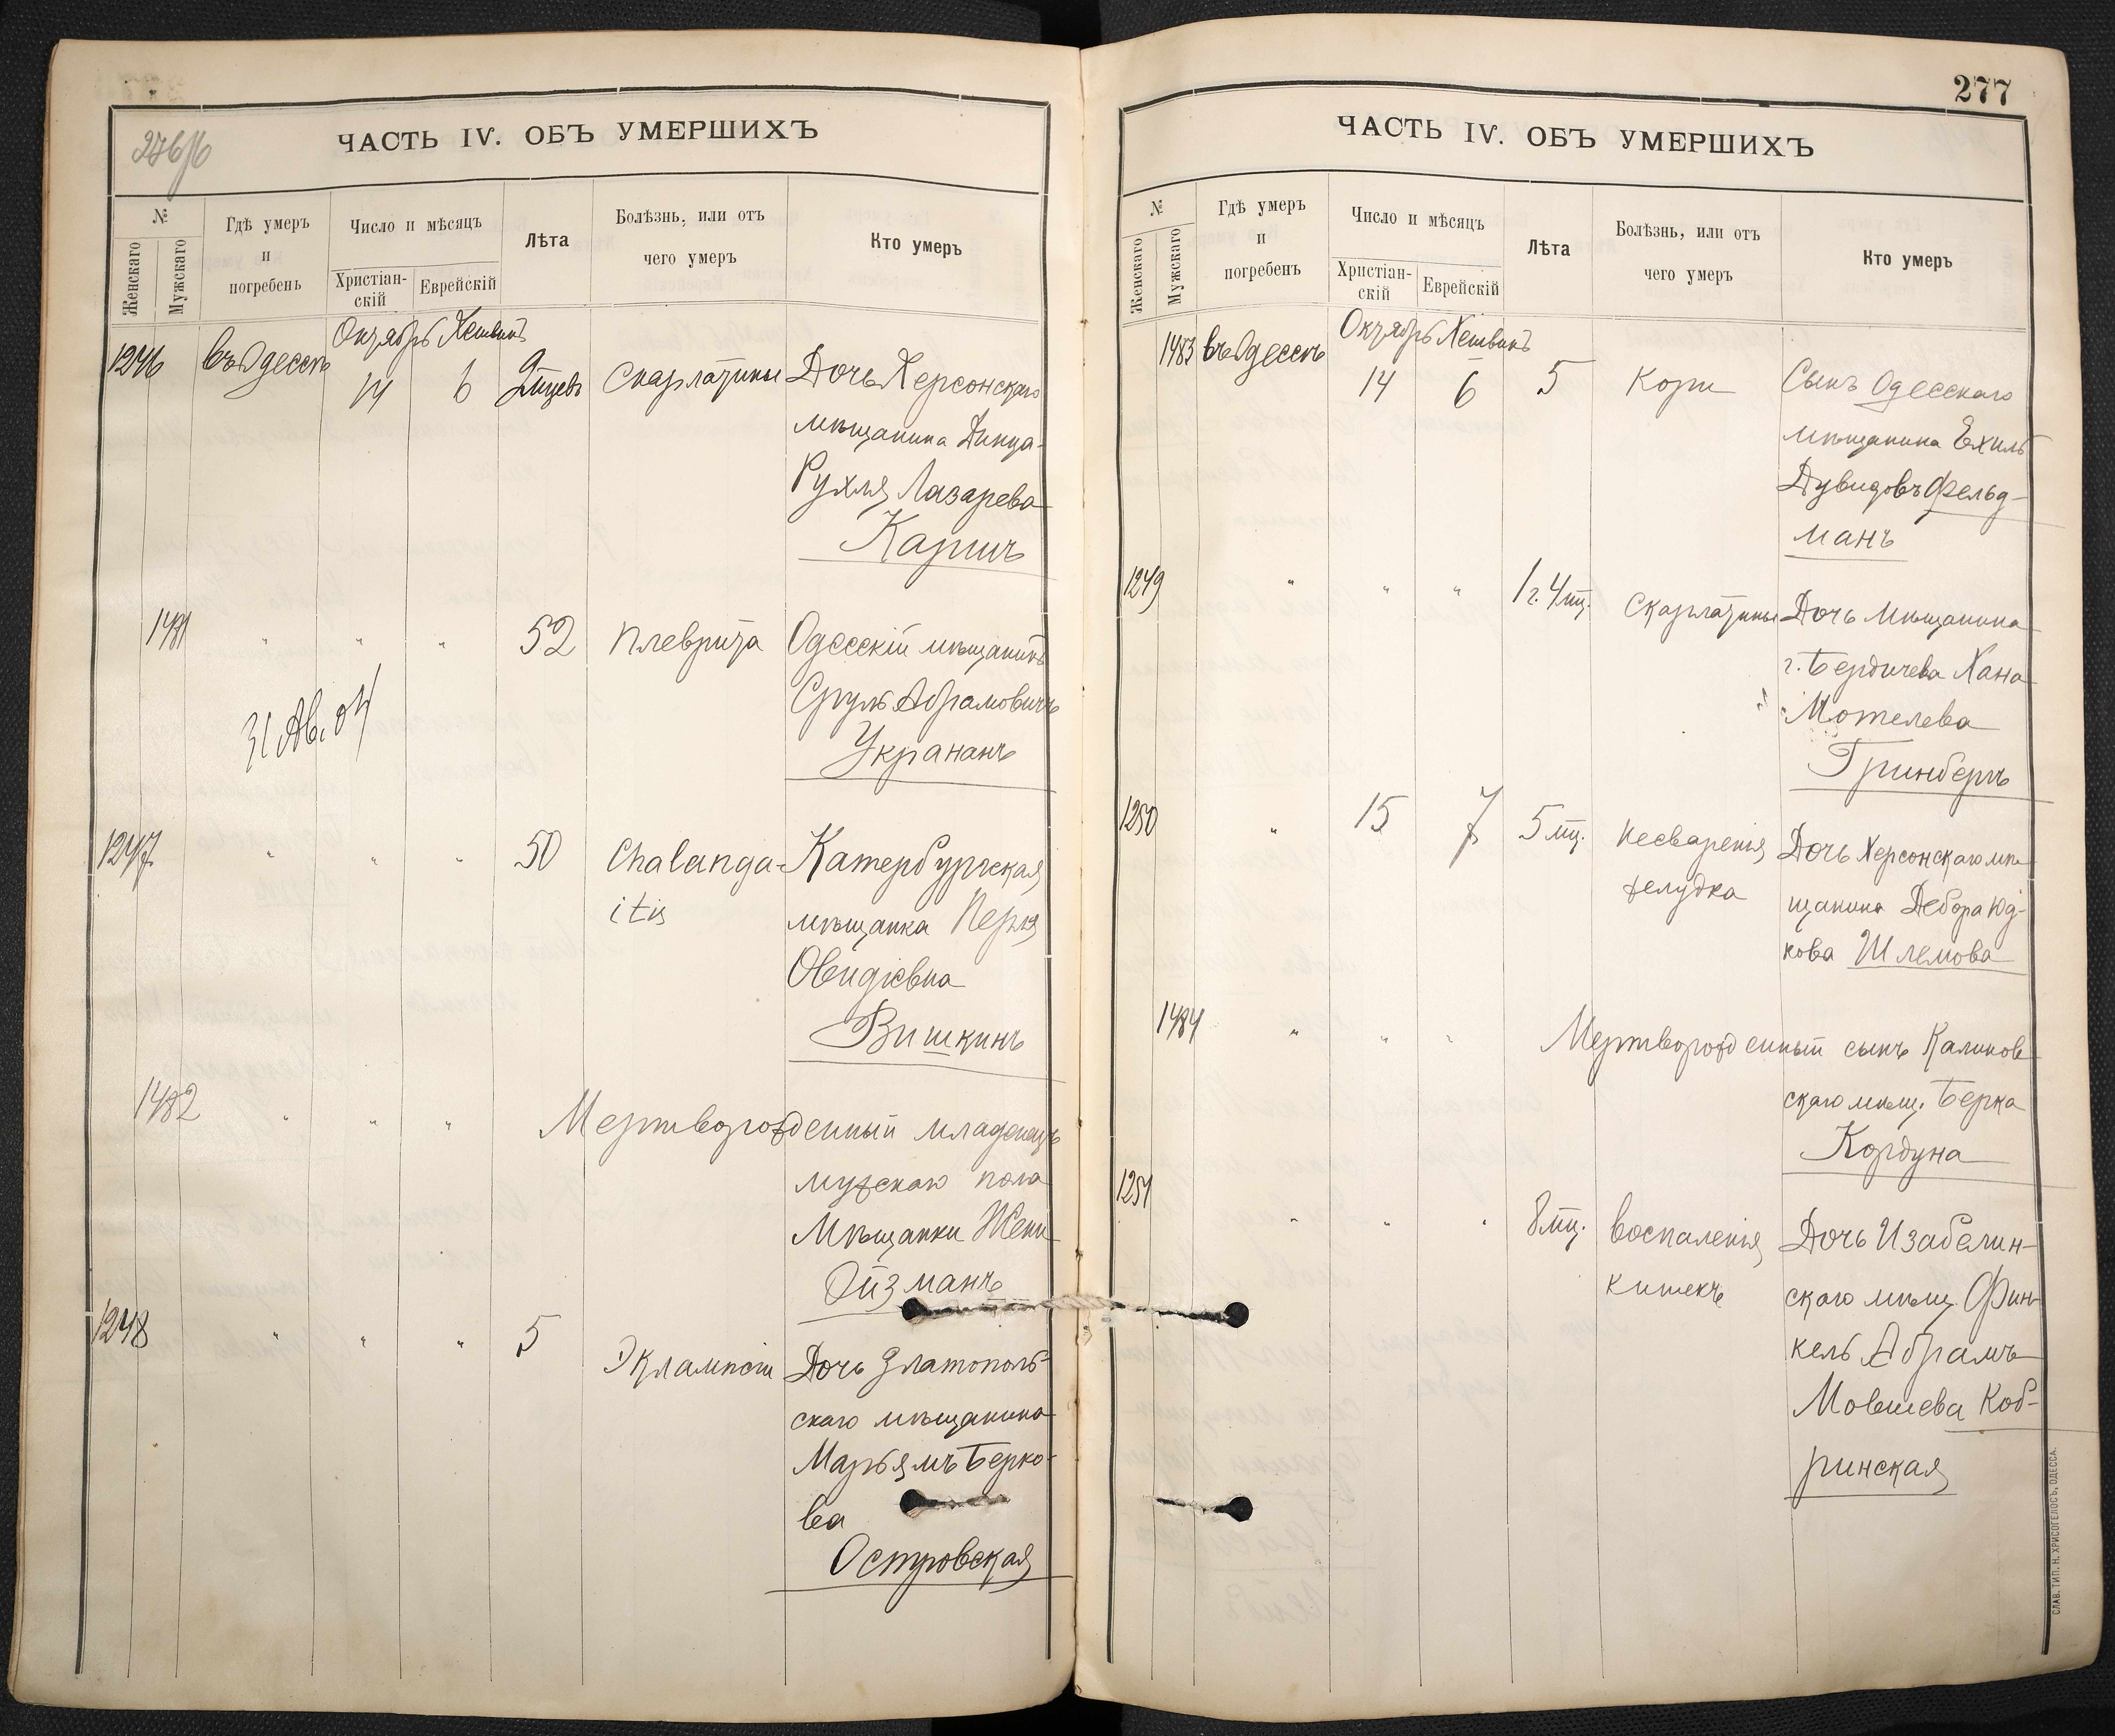 276/б
ЧАСТЬ IV. ОБЪ УМЕРШИХЪ
№
Женскаго
Мужскаго
Гдѣ умеръ
и
погребень
Число и мѣсяцъ
Христіан-
скій
Еврейскій
Лѣта
Болѣзнь, или отъ
чего умеръ
Кто умеръ
Октябрь Хешвинъ
1246 въ Одессѣ 14 6 9 мцевъ Скарлатины Дочь Херсонскаго
мѣщанина Динца-
Рухля Лазарева
Каричъ
1481 " " " 52 Плеврита Одесскій мѣщанинъ
Сруль Абрамовичъ
Укрананъ
31 Ав. 04
1247 " " " 50 Chalanga- Катербургская
itis мѣщанка Перля
Овидіевна
Вишкинъ
1482 " " " Мертворожденный младенецъ
мужскаго пола
Мѣщанки Жени
Ойзманъ
1248 " " " 5 Эклампсіи Дочь Златополь-
скаго мѣщанина
Марьямъ Берко-
ва
Островская
277
ЧАСТЬ IV. ОБЪ УМЕРШИХЪ
№
Женскаго
Мужскаго
Гдѣ умеръ
и
погребенъ
Число и мѣсяцъ
Христіан-
скій
Еврейскій
Лѣта
Болѣзнь, или отъ
чего умеръ
Кто умеръ
Октябрь Хешвинъ
1483 въ Одессѣ 14 6 5 Кори Сынъ Одесскаго
мѣщанина Ехиль
Дувидовъ Фельд-
манъ
1249 " " " 1 г. 4 мц. Скарлатины Дочь Мѣщанина
г. Бердичева Хана
Мотелева
Гринбергъ
1250 " 15 7 5 мц. Несваренія Дочь Херсонскаго мѣ-
желудка щанина Дебора Юд-
кова Шлемова
1484 " " " Мертворожденный сынъ Калинов-
скаго мѣщ. Берка
Кордуна
1251 " " " 8 мц. Воспаленія Дочь Изабелин-
кишекъ скаго мѣщ. Фин-
кель Абрамъ
Мовшева Коб-
ринская
СЛАВ. ТИП. Н. ХРИСОГЕЛОСЪ, ОДЕССА.